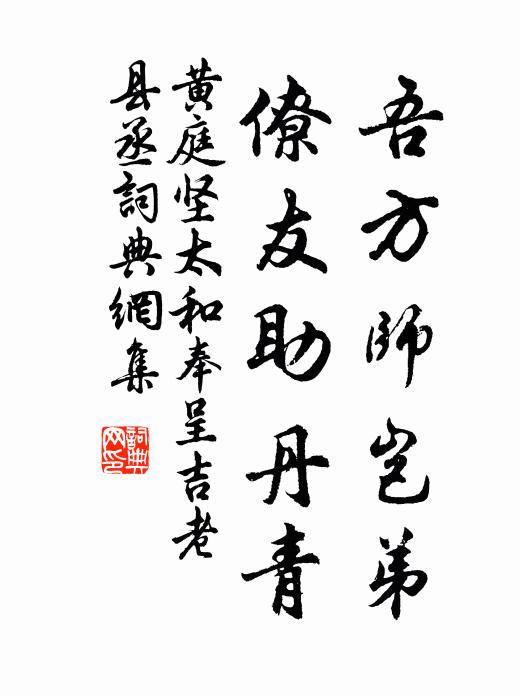 吾方師岂弟
僚友助丹青
黄庭坚太和奉呈吉老
县丞詞典網集
詞典
网印